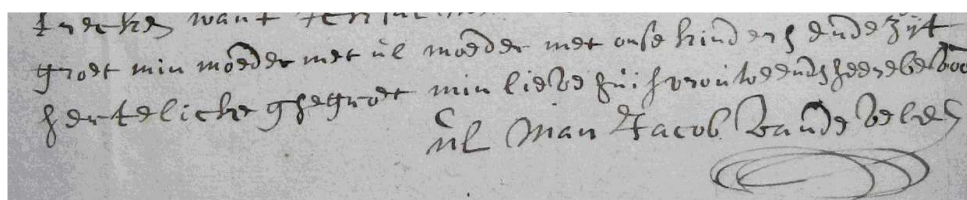 trecken want
groet min moeder met ul moeder met onse kinders ende zijt
hertelicke ghegroet min lieve huisvrouwe ende
ul Man Jacob vande velde